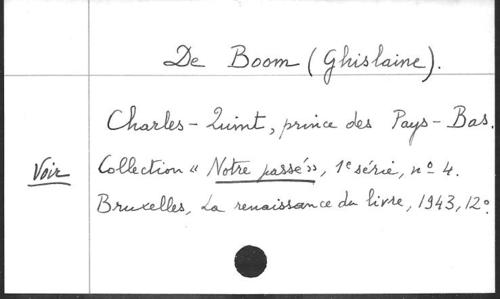 De Boom (Ghislaine).
Charles-Quint, prince des Pays-Bas.
Voir Collection « Notre passé », 1e série, nº 4.
Bruxelles, La renaissance du livre, 1943, 12º.